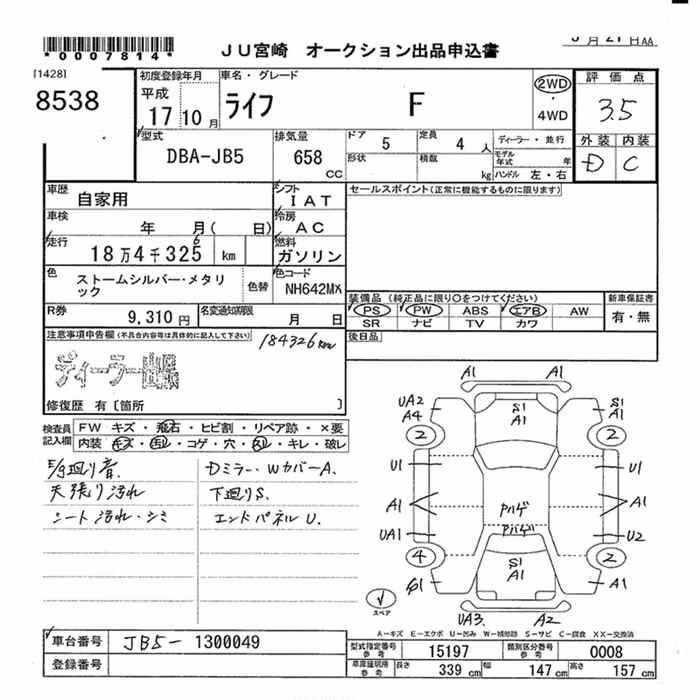 *0007814*
JU宮崎 オークション出品申込書
月21日AA
[1428]
8538
初度登録年月
平成
17 10月
車名・グレード
ライフ F
2WD
・
4WD
評価点
3.5
外装 内装
D C
型式
DBA-JB5
排気量
658
CC
ドア 5
定員 4 人
形状
積載 kg
ディーラー・並行
モデル年式 年
ハンドル 左・右
車歴
自家用
シフト
IAT
セールスポイント(正常に機能するものに限ります)
車検
年 月( 日)
冷房
AC
走行
18万4千325 km
6
燃料
ガソリン
色
ストームシルバー・メタリック
色替
色コード
NH642MX
R券
9,310円
名変通知期限
月 日
装備品 (純正品に限り○をつけてください)
PS PW ABS エアB AW
SR ナビ TV カワ
新車保証書
有・無
後日品
注意事項申告欄(不具合内容等は具体的に記入して下さい)
184326km
ディーラー出品
修復歴 有〔箇所 〕
検査員記入欄
FW キズ・飛石・ヒビ割・リペア跡・×要
内装 キズ・汚レ・コゲ・穴・スレ・キレ・破レ
E/g廻り音.
天張り汚れ
シート汚れ・シミ
Dミラー・WカバーA.
下廻りS.
エンドパネルU.
A1
A1
UA2
A4
S1
A1
S1
A1
2
2
U1
U1
A1
A1
Pハゲ
UA1
Pハゲ
U2
4
2
S1
A1
A1
スペア
UA3.
A2
A-キズ E-エクボ U-凹み W-補修跡 S-サビ C-腐食 XX-交換済
車台番号
JB5-1300049
登録番号
型式指定番号
参考
15197
類別区分番号
参考
0008
参考
長さ 339 cm
幅 147 cm
高さ 157 cm